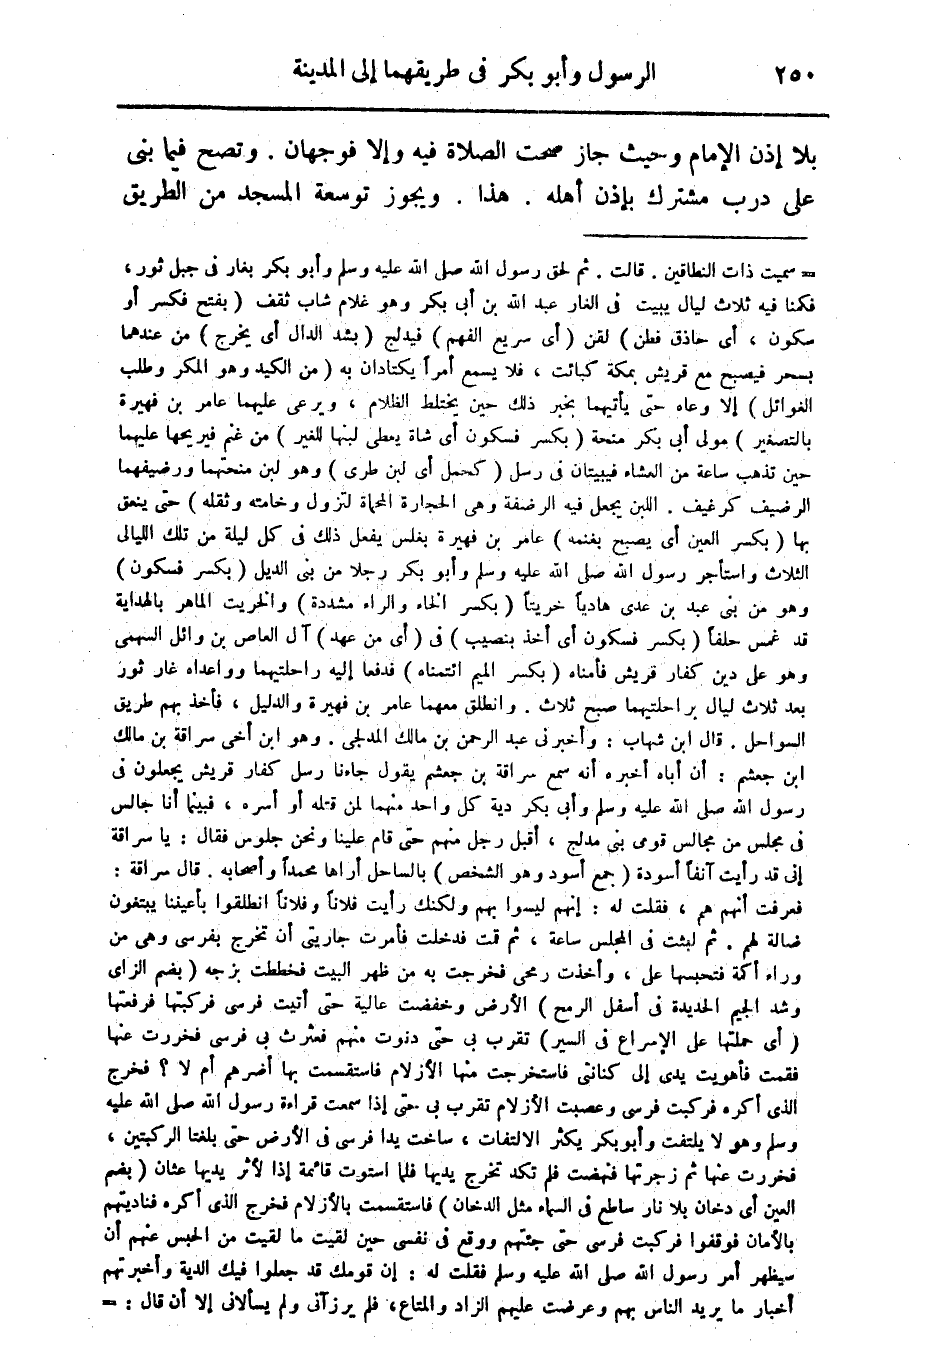 ٢٥٠ الرسول وأبو بكر فى طريقهما إلى المدينة
بلا إذن الإمام وحيث جاز صحت الصلاة فيه وإلا فوجهان . وتصح فيما بنى
على درب مشترك بإذن أهله . هذا . ويجوز توسعة المسجد من الطريق
= سميت ذات النطاقين . قالت . ثم لحق رسول الله صلى الله عليه وسلم وأبو بكر بغار فى جبل ثور ،
فكنا فيه ثلاث ليال يبيت فى الغار عبد الله بن أبى بكر وهو غلام شاب ثقف ( بفتح فكسر أو
سكون ، أى حاذق فطن ) لقن ( أى سريع الفهم ) فيدلج ( بشد الدال أى يخرج ) من عندهما
بسحر فيصبح مع قريش بمكة كبائت ، فلا يسمع أمراً يكتادان به ( من الكيد وهو المكر وطلب
الغوائل ) إلا وعاه حتى يأتيهما بخبر ذلك حين يختلط الظلام ، ويرعى عليهما عامر بن فهيرة
بالتصغير ) مولى أبى بكر منحة ( بكسر فسكون أى شاة يعطى لبنها للغير ) من غنم فيريحها عليهما
حين تذهب ساعة من العشاء فيبيتان فى رسل ( كحمل أى لبن طرى ) وهو لبن منحتهما ورضيفهما
الرضيف كرغيف . اللبن يجعل فيه الرضفة وهى الحجارة المحماة لتزول وخامته وثقله ) حتى ينعق
بها ( بكسر العين أى يصبح بغنمه ) عامر بن فهيرة بغلس يفعل ذلك فى كل ليلة من تلك الليالى
الثلاث واستأجر رسول الله صلى الله عليه وسلم وأبو بكر رجلا من بنى الديل ( بكسر فسكون )
وهو من بنى عبد بن عدى هادياً خريتاً ( بكسر الخاء والراء مشددة ) والخريت الماهر بالهداية
قد غمس حلفاً ( بكسر فسكون أى أخذ بنصيب ) فى ( أى من عهد ) آل العاص بن وائل السهمى
وهو على دين كفار قريش فأمناه ( بكسر الميم ائتمناه ) فدفعا إليه راحلتيهما وواعداه غار ثور
بعد ثلاث ليال براحلتيهما صبح ثلاث . وانطلق معهما عامر بن فهيرة والدليل ، فأخذ بهم طريق
السواحل . قال ابن شهاب : وأخبرنى عبد الرحمن بن مالك المدلجى . وهو ابن أخى سراقة بن مالك
ابن جعشم : أن أباه أخبره أنه سمع سراقة بن جعشم يقول جاءنا رسل كفار قريش يجعلون فى
رسول الله صلى الله عليه وسلم وأبى بكر دية كل واحد منهما لمن قتله أو أسره ، فبينما أنا جالس
فى مجلس من مجالس قومى بنى مدلج ، أقبل رجل منهم حتى قام علينا ونحن جلوس فقال : يا سراقة
إنى قد رأيت آنفاً أسودة ( جمع أسود وهو الشخص ) بالساحل أراها محمداً وأصحابه . قال سراقة :
فعرفت أنهم هم ، فقلت له : إنهم ليسوا بهم ولكنك رأيت فلاناً وفلاناً انطلقوا بأعيننا يبتغون
ضالة لهم . ثم لبثت فى المجلس ساعة ، ثم قمت فدخلت فأمرت جاريتى أن تخرج بفرسى وهى من
وراء أكمة فتحبسها على ، وأخذت رمحى فخرجت به من ظهر البيت فخططت بزجه ( بضم الزاى
وشد الجيم الحديدة فى أسفل الرمح ) الأرض وخفضت عالية حتى أتيت فرسى فركبتها فرفعتها
( أى حملتها على الإسراع فى السير ) تقرب بى حتى دنوت منهم فعثرت بى فرسى فخررت عنها
فقمت فأهويت يدى إلى كنانتى فاستخرجت منها الأزلام فاستقسمت بها أضرهم أم لا ؟ فخرج
الذى أكره فركبت فرسى وعصبت الأزلام تقرب بى حتى إذا سمعت قراءة رسول الله صلى الله عليه
وسلم وهو لا يلتفت وأبو بكر يكثر الالتفات ، ساخت يدا فرسى فى الأرض حتى بلغتا الركبتين ،
فخررت عنها ثم زجرتها فنهضت فلم تكد تخرج يديها فلما استوت قائمة إذا لأثر يديها عثان ( بضم
العين أى دخان بلا نار ساطع فى السماء مثل الدخان ) فاستقسمت بالأزلام فخرج الذى أكره فناديتهم
بالأمان فوقفوا فركبت فرسى حتى جئتهم ووقع فى نفسى حين لقيت ما لقيت من الحبس عنهم أن
سيظهر أمر رسول الله صلى الله عليه وسلم فقلت له : إن قومك قد جعلوا فيك الدية وأخبرتهم
أخبار ما يريد الناس بهم وعرضت عليهم الزاد والمتاع، فلم يرزآنى ولم يسألانى إلا أن قال : =